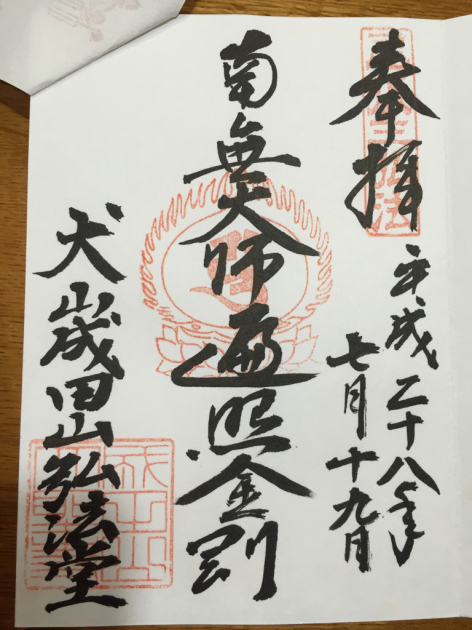 奉拝
平成二十八年
七月十九日
南無大師遍照金剛
犬山成田山弘法堂